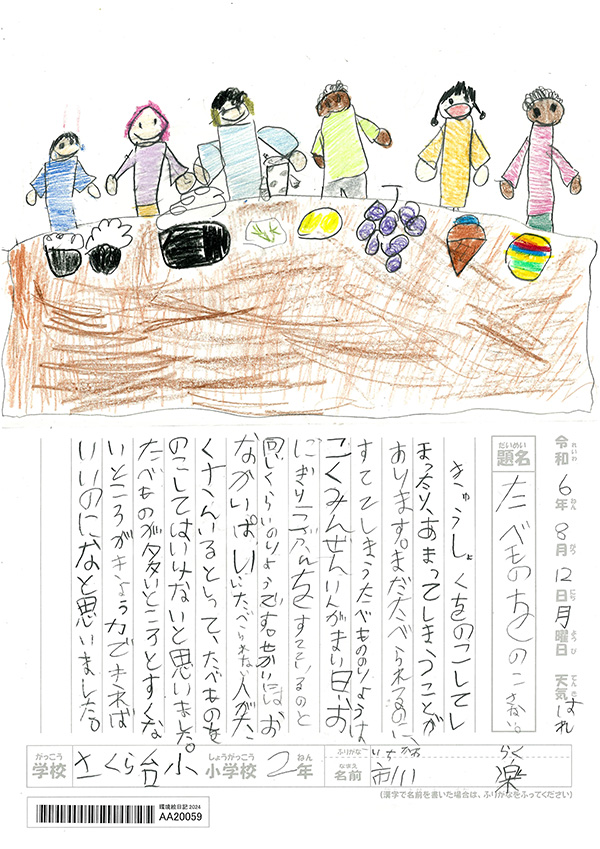 令和6年8月12日月曜日 天気はれ
れいわ ねん がつ にち ようび てんき
だいめい
題名 たべものをのこさない。
きゅうしょくをのこしてし
まったり、あまってしまうことが
あります。まだたべられるのに、
すててしまうたべもののりょうは、
こくみんぜんいんがまい日、お
にぎり1こぶんをすてているのと
同じくらいのりょうです。せかいにはお
なかいっぱいたべられない人がた
くさんいるといって、たべものを
のこしてはいけないと思いました。
たべものが多いところとすくな
いところがきょう力できれば
いいのになと思いました。
がっこう しょうがっこう ねん ふりがな いちかわ らく
学校 さくら台小 小学校 2年 なまえ 名前 市川 楽
(漢字で名前を書いた場合は、ふりがなをふってください)
環境絵日記2024
AA20059